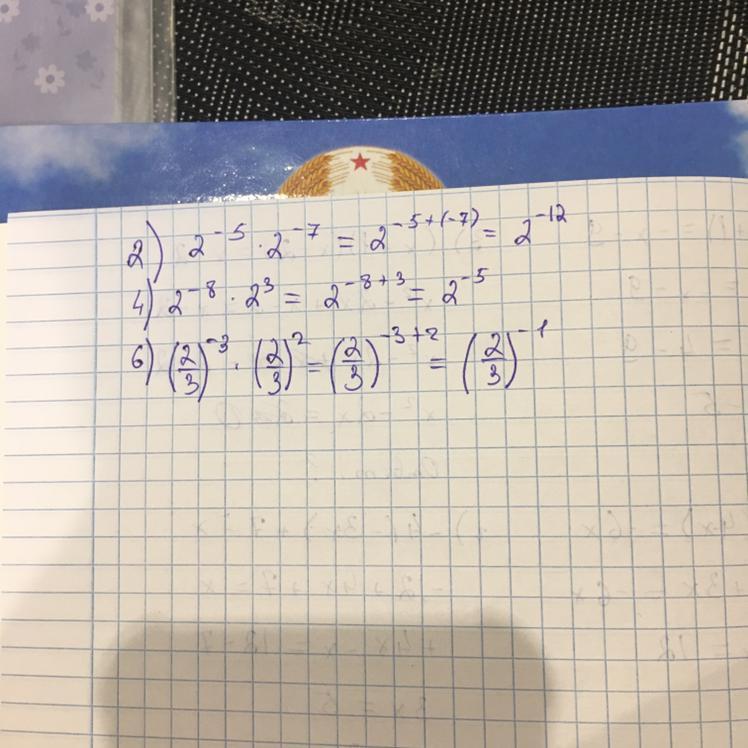 2) 2^{-5} · 2^{-7} = 2^{-5+(-7)} = 2^{-12}
4) 2^{-8} · 2^{3} = 2^{-8+3} = 2^{-5}
6) (2/3)^{-3} · (2/3)^{2} = (2/3)^{-3+2} = (2/3)^{-1}